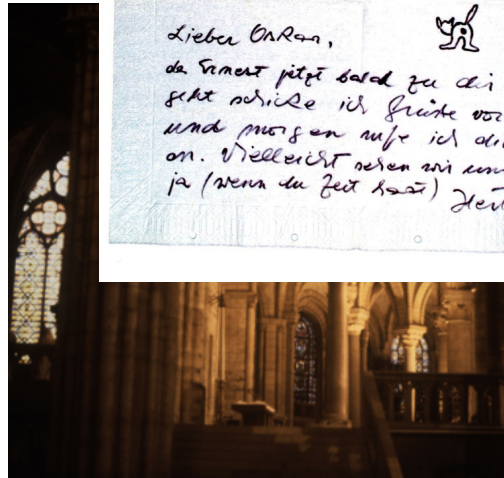 Lieber Onkan,
da Ernest jetzt bald zu dir
geht schicke ich Grüße vor
und morgen rufe ich di
an. Vielleicht sehen wir un
ja (wenn du Zeit hast)